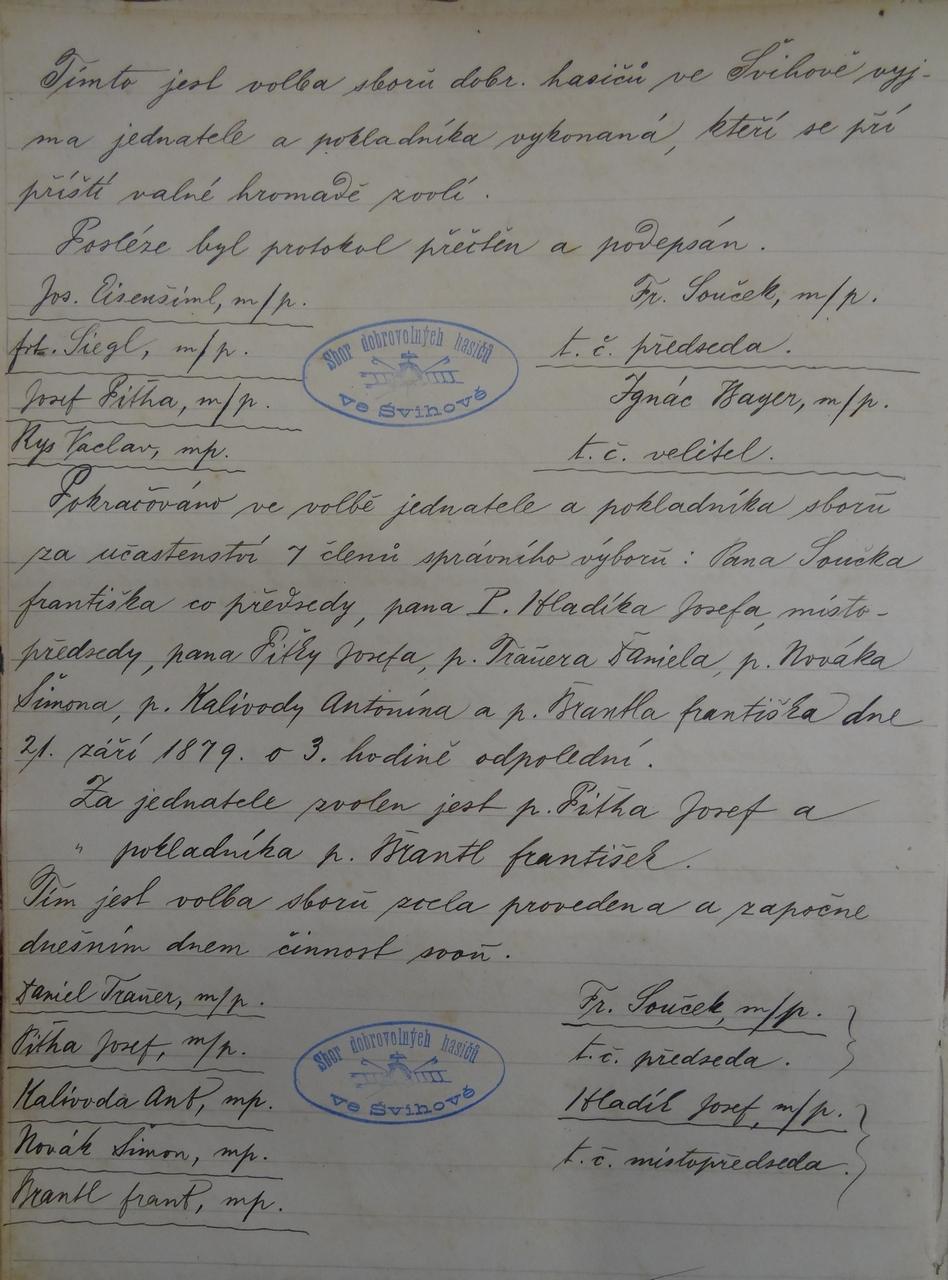 Tímto jest volba sborů dobr. hasičů ve Švihově vyj-
ma jednatele a pokladníka vykonaná, kteří se pří
příští valné hromadě zvolí.
Posléze byl protokol přečtěn a podepsán.
Jos. Eisenšiml, m/p. Fr. Souček, m/p.
Siegl, m/p. t. č. předseda.
Josef Pitha, m/p. Ignác Bayer, m/p.
Rys Vaclav, mp. t. č. velitel.
Sbor dobrovolných hasičů
ve Švihově
Pokračováno ve volbě jednatele a pokladníka sborů
za učastenství 7 členů správního výborů: Pana Součka
františka co předsedy, pana P. Hladíka Josefa, místo-
předsedy, pana Pithy Josefa, p. Traŭera Daniela, p. Nováka
Šimona, p. Kalivody Antonína a p. Brantla františka dne
21. září 1879. o 3. hodině odpolední.
Za jednatele zvolen jest p. Pitha Josef a
" pokladníka p. Brantl františek.
Tím jest volba sborů zcela provedena a započne
dnešním dnem činnost svoŭ.
Daniel Traŭer, m/p. Fr. Souček, m/p.
Pitha Josef, m/p. t. č. předseda.
Kalivoda Ant, mp. Hladík Josef, m/p.
Novák Šimon, mp. t. č. místopředseda.
Brantl frant, mp.
Sbor dobrovolných hasičů
ve Švihově